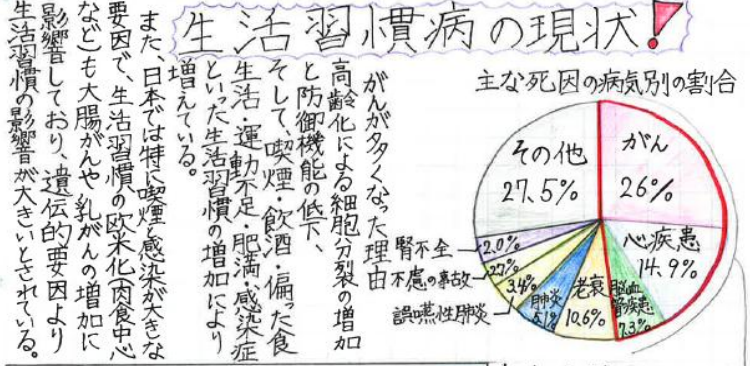 生活習慣病の現状!
主な死因の病気別の割合
がん
26%
心疾患
14.9%
脳血管疾患
7.3%
老衰
10.6%
肺炎
5.1%
誤嚥性肺炎
3.4%
不慮の事故
2.7%
腎不全
2.0%
その他
27.5%
がんが多くなった理由
高齢化による細胞分裂の増加
と防御機能の低下、
そして、喫煙・飲酒・偏った食
生活・運動不足・肥満・感染症
といった生活習慣の増加により
増えている。
また、日本では特に喫煙と感染が大きな
要因で、生活習慣の欧米化(肉食中心
など)も大腸がんや乳がんの増加に
影響しており、遺伝的要因より
生活習慣の影響が大きいとされている。